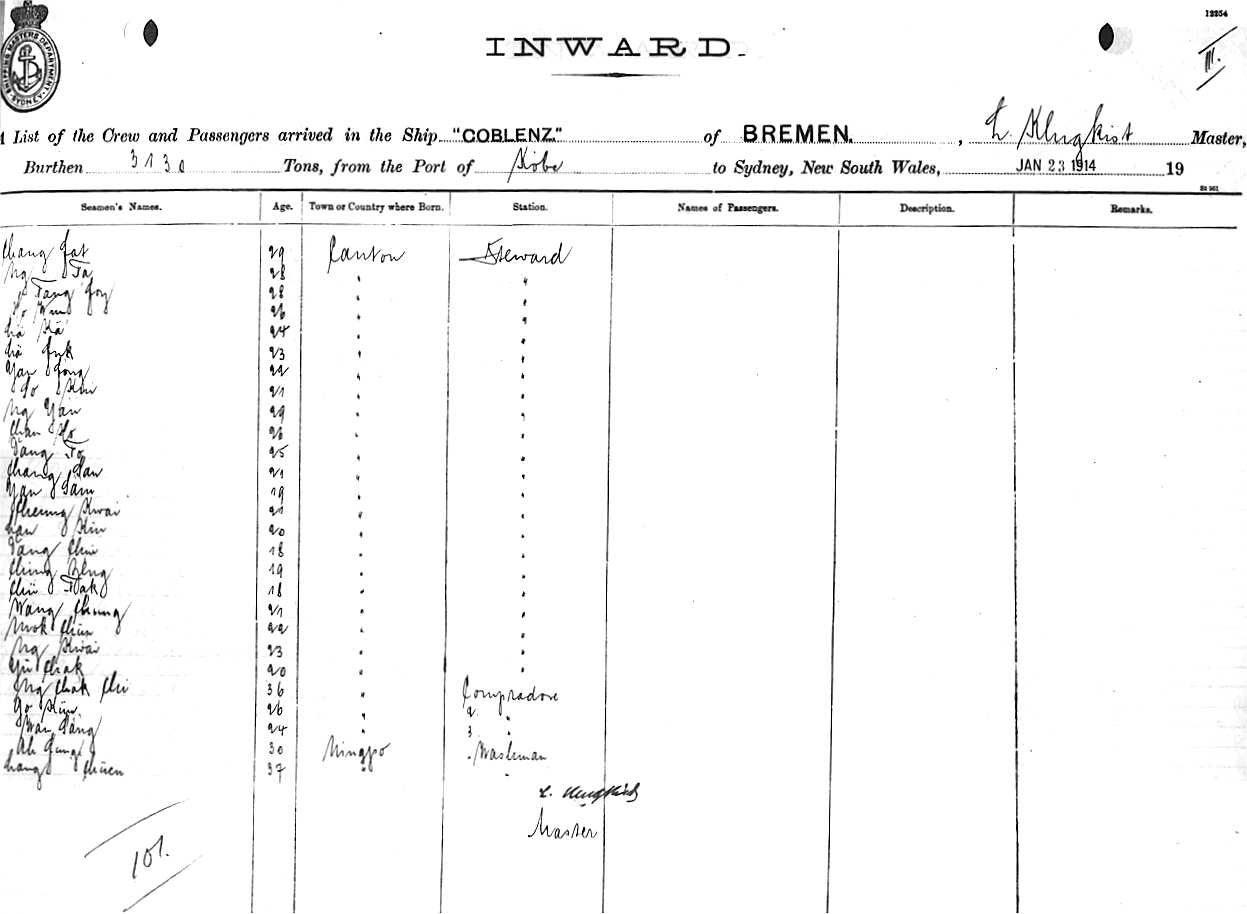 12254
III.
SHIPPING MASTERS DEPARTMENT. SYDNEY.
INWARD.
List of the Crew and Passengers arrived in the Ship "COBLENZ." of BREMEN. , L. Klugkist Master,
Burthen 3130 Tons, from the Port of Kobe to Sydney, New South Wales, JAN 23 1914 19
Seamen's Names. Age. Town or Country where Born. Station. Names of Passengers. Description. Remarks.
Chang Fat 29 Canton Steward
Ng Ta 28 " "
Tang Foy 28 " "
26 " "
Ka 24 " "
23 " "
Yan Fong 22 " "
21 " "
Ng Yan 29 " "
Chan Ho 26 " "
Tang To 25 " "
Chang San 21 " "
Yan Sam 19 " "
Cheung Kwai 21 " "
Kin 20 " "
Tang Chiu 18 " "
Ching 19 " "
Tak 18 " "
Wang Cheung 21 " "
Mok 22 " "
Ng Kwai 23 " "
Yü Chak 20 " "
Ng Chak Chi 36 " Compradore
26 " 2. "
Wan Tang 24 " 3 "
Ah 30 Ningpo Washman
37 " "
L. Klugkist
Master
101.